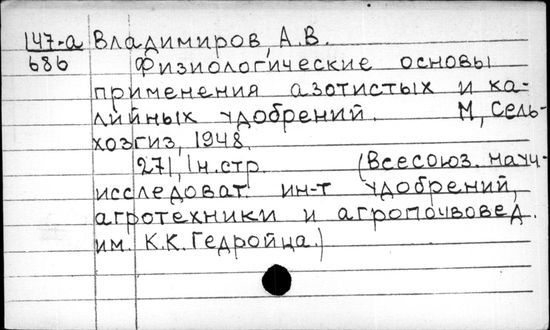 147-а Владимиров, А.В.
686 Физиологические основы
применения азотистых и ка-
лийных удобрений. М, Сель-
хозгиз, 1948.
271, 1н.стр. (Всесоюз. науч-
исследоват. ин-т удобрений,
агротехники и агропочвовед.
им. К.К. Гедройца.)